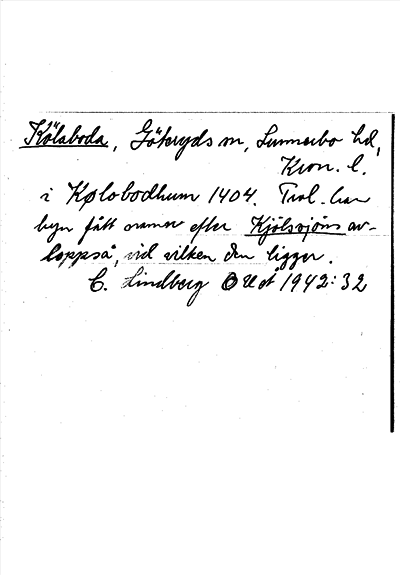 Kölaboda, Göteryds sn, Sunnerbo hd,
Kron. l.
i Kølobodhum 1404. Trol. har
byn fått namn efter Kjölsjöns av-
loppså, vid vilken den ligger.
C. Lindberg 1942:32